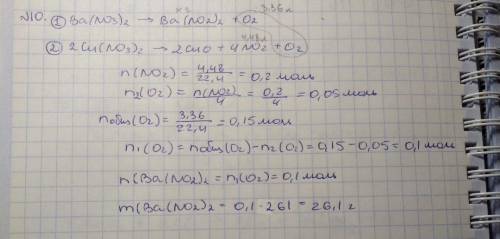 к 3 3,36 л
№10. ① Ba(NO3)2 → Ba(NO2)2 + O2
4,48 л
② 2Cu(NO3)2 → 2CuO + 4NO2 + O2
n(NO2) = 4,48/22,4 = 0,2 моль
n2(O2) = n(NO2)/4 = 0,2/4 = 0,05 моль
nобщ(O2) = 3,36/22,4 = 0,15 моль
n1(O2) = nобщ(O2) - n2(O2) = 0,15 - 0,05 = 0,1 моль
n(Ba(NO2)2 = n1(O2) = 0,1 моль
m(Ba(NO2)2 = 0,1 · 261 = 26,1 г